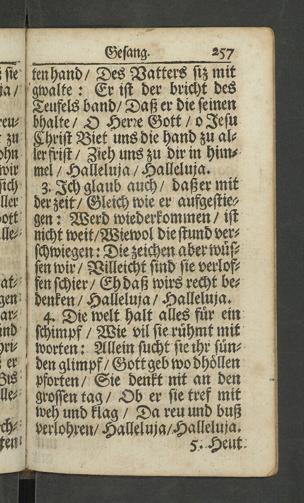 Gesang. 257
ten hand / Des Vatters siz mit
gwalte : Er ist der bricht des
Teufels band / Daß er die seinen
bhalte / O Herre Gott / o Jesu
Christ Biet uns die hand zu al-
ler frist / Zieh uns zu dir in him-
mel / Halleluja / Halleluja.
3. Ich glaub auch / daß er mit
der zeit / Gleich wie er aufgestie-
gen : Werd wiederkommen / ist
nicht weit / Wiewol die stund ver-
schwiegen : Die zeichen aber wüs-
sen wir / Villeicht sind sie verlof-
fen schier / Eh daß wirs recht be-
denken / Halleluja / Halleluja.
4. Die welt halt alles für ein
schimpf / Wie vil sie rühmt mit
worten : Allein sucht sie ihr sün-
den glimpf / Gott geb wo d'höllen
pforten / Sie denkt nit an den
grossen tag / Ob er sie tref mit
weh und klag / Da reu und buß
verlohren / Halleluja / Halleluja.
5. Heut